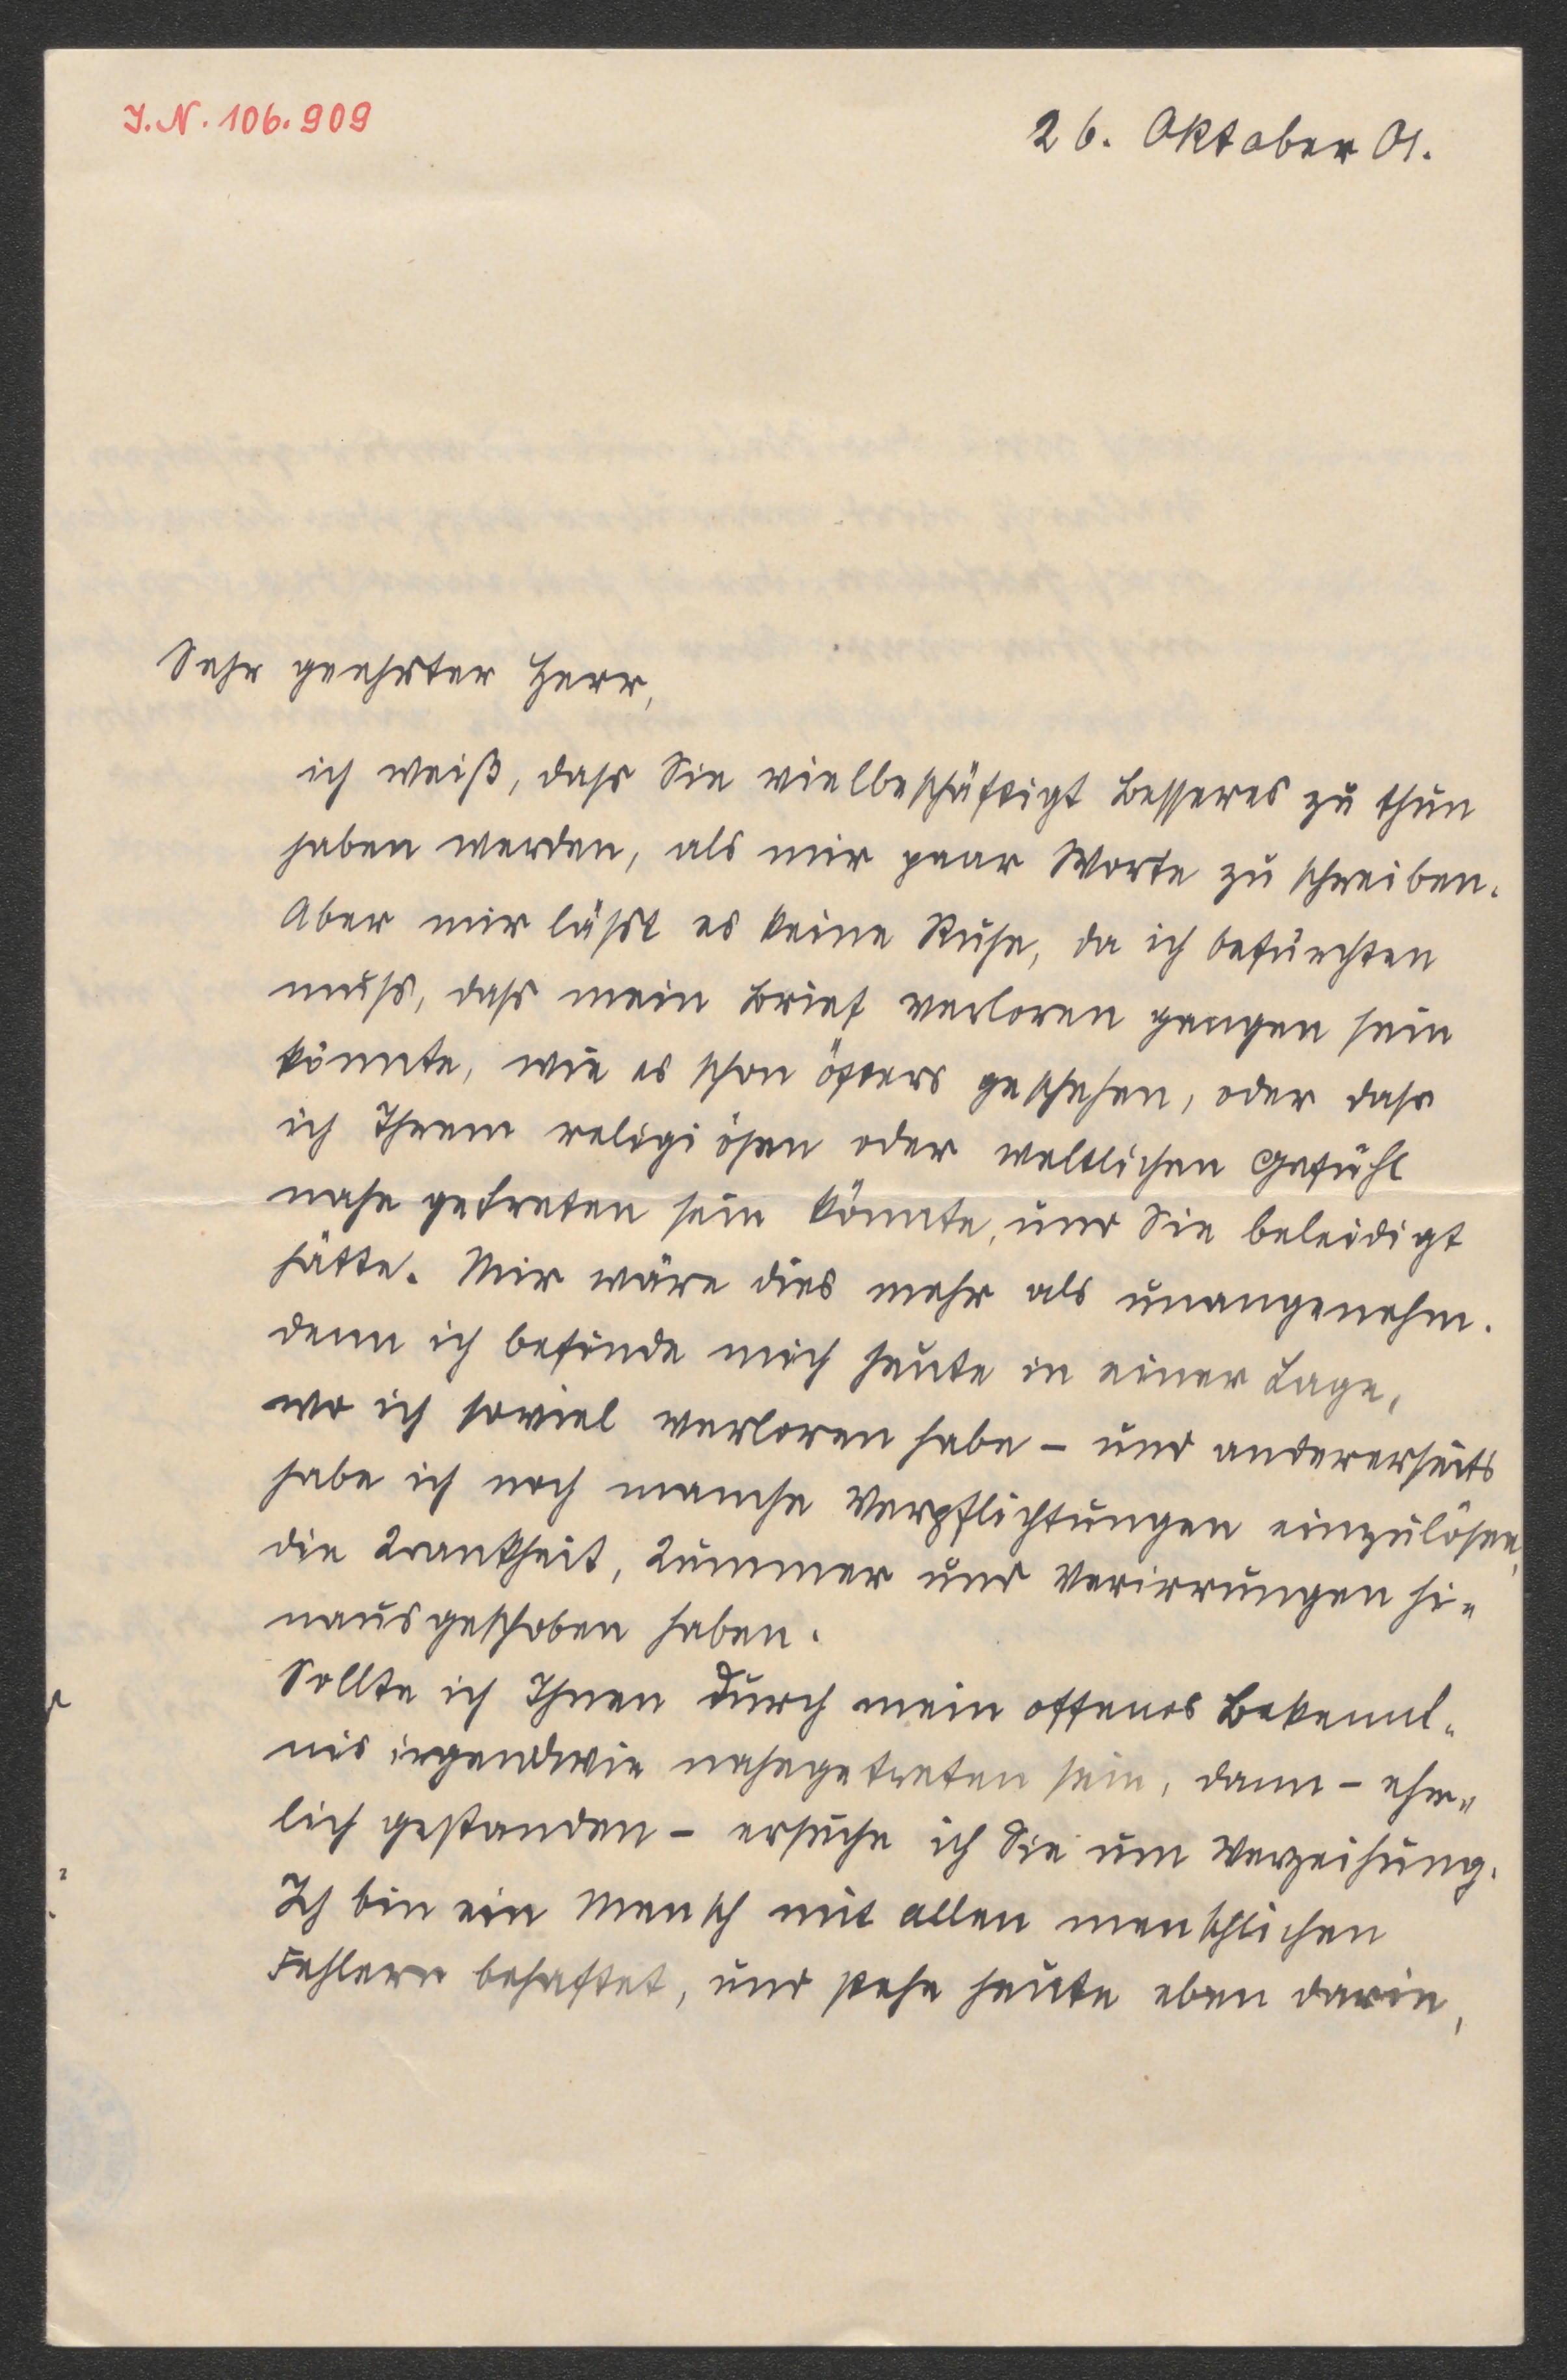 J.N. 106.909
26. Oktober 01.
Sehr geehrter Herr,
ich weiß, dass Sie vielbeschäftigt Besseres zu thun
haben werden, als mir paar Worte zu schreiben.
Aber mir lässt es keine Ruhe, da ich befürchten
muss, dass mein Brief verloren gangen sein
könnte, wie es schon öfters geschehen, oder dass
ich Ihrem religiösen oder weltlichen Gefühl
nahe getreten sein könnte, und Sie beleidigt
hätte. Mir wäre dies mehr als unangenehm.
denn ich befinde mich heute in einer Lage,
wo ich soviel verloren habe – und andererseits
habe ich noch manche Verpflichtungen einzulösen,
die Krankheit, Kummer und Verirrungen hi-
nausgeschoben haben.
Sollte ich Ihnen durch mein offenes Bekennt-
nis irgendwie nahegetreten sein, dann – ehr-
lich gestanden – ersuche ich Sie um Verzeihung.
Ich bin ein Mensch mit allen menschlichen
Fehlern behaftet, und stehe heute eben darin,